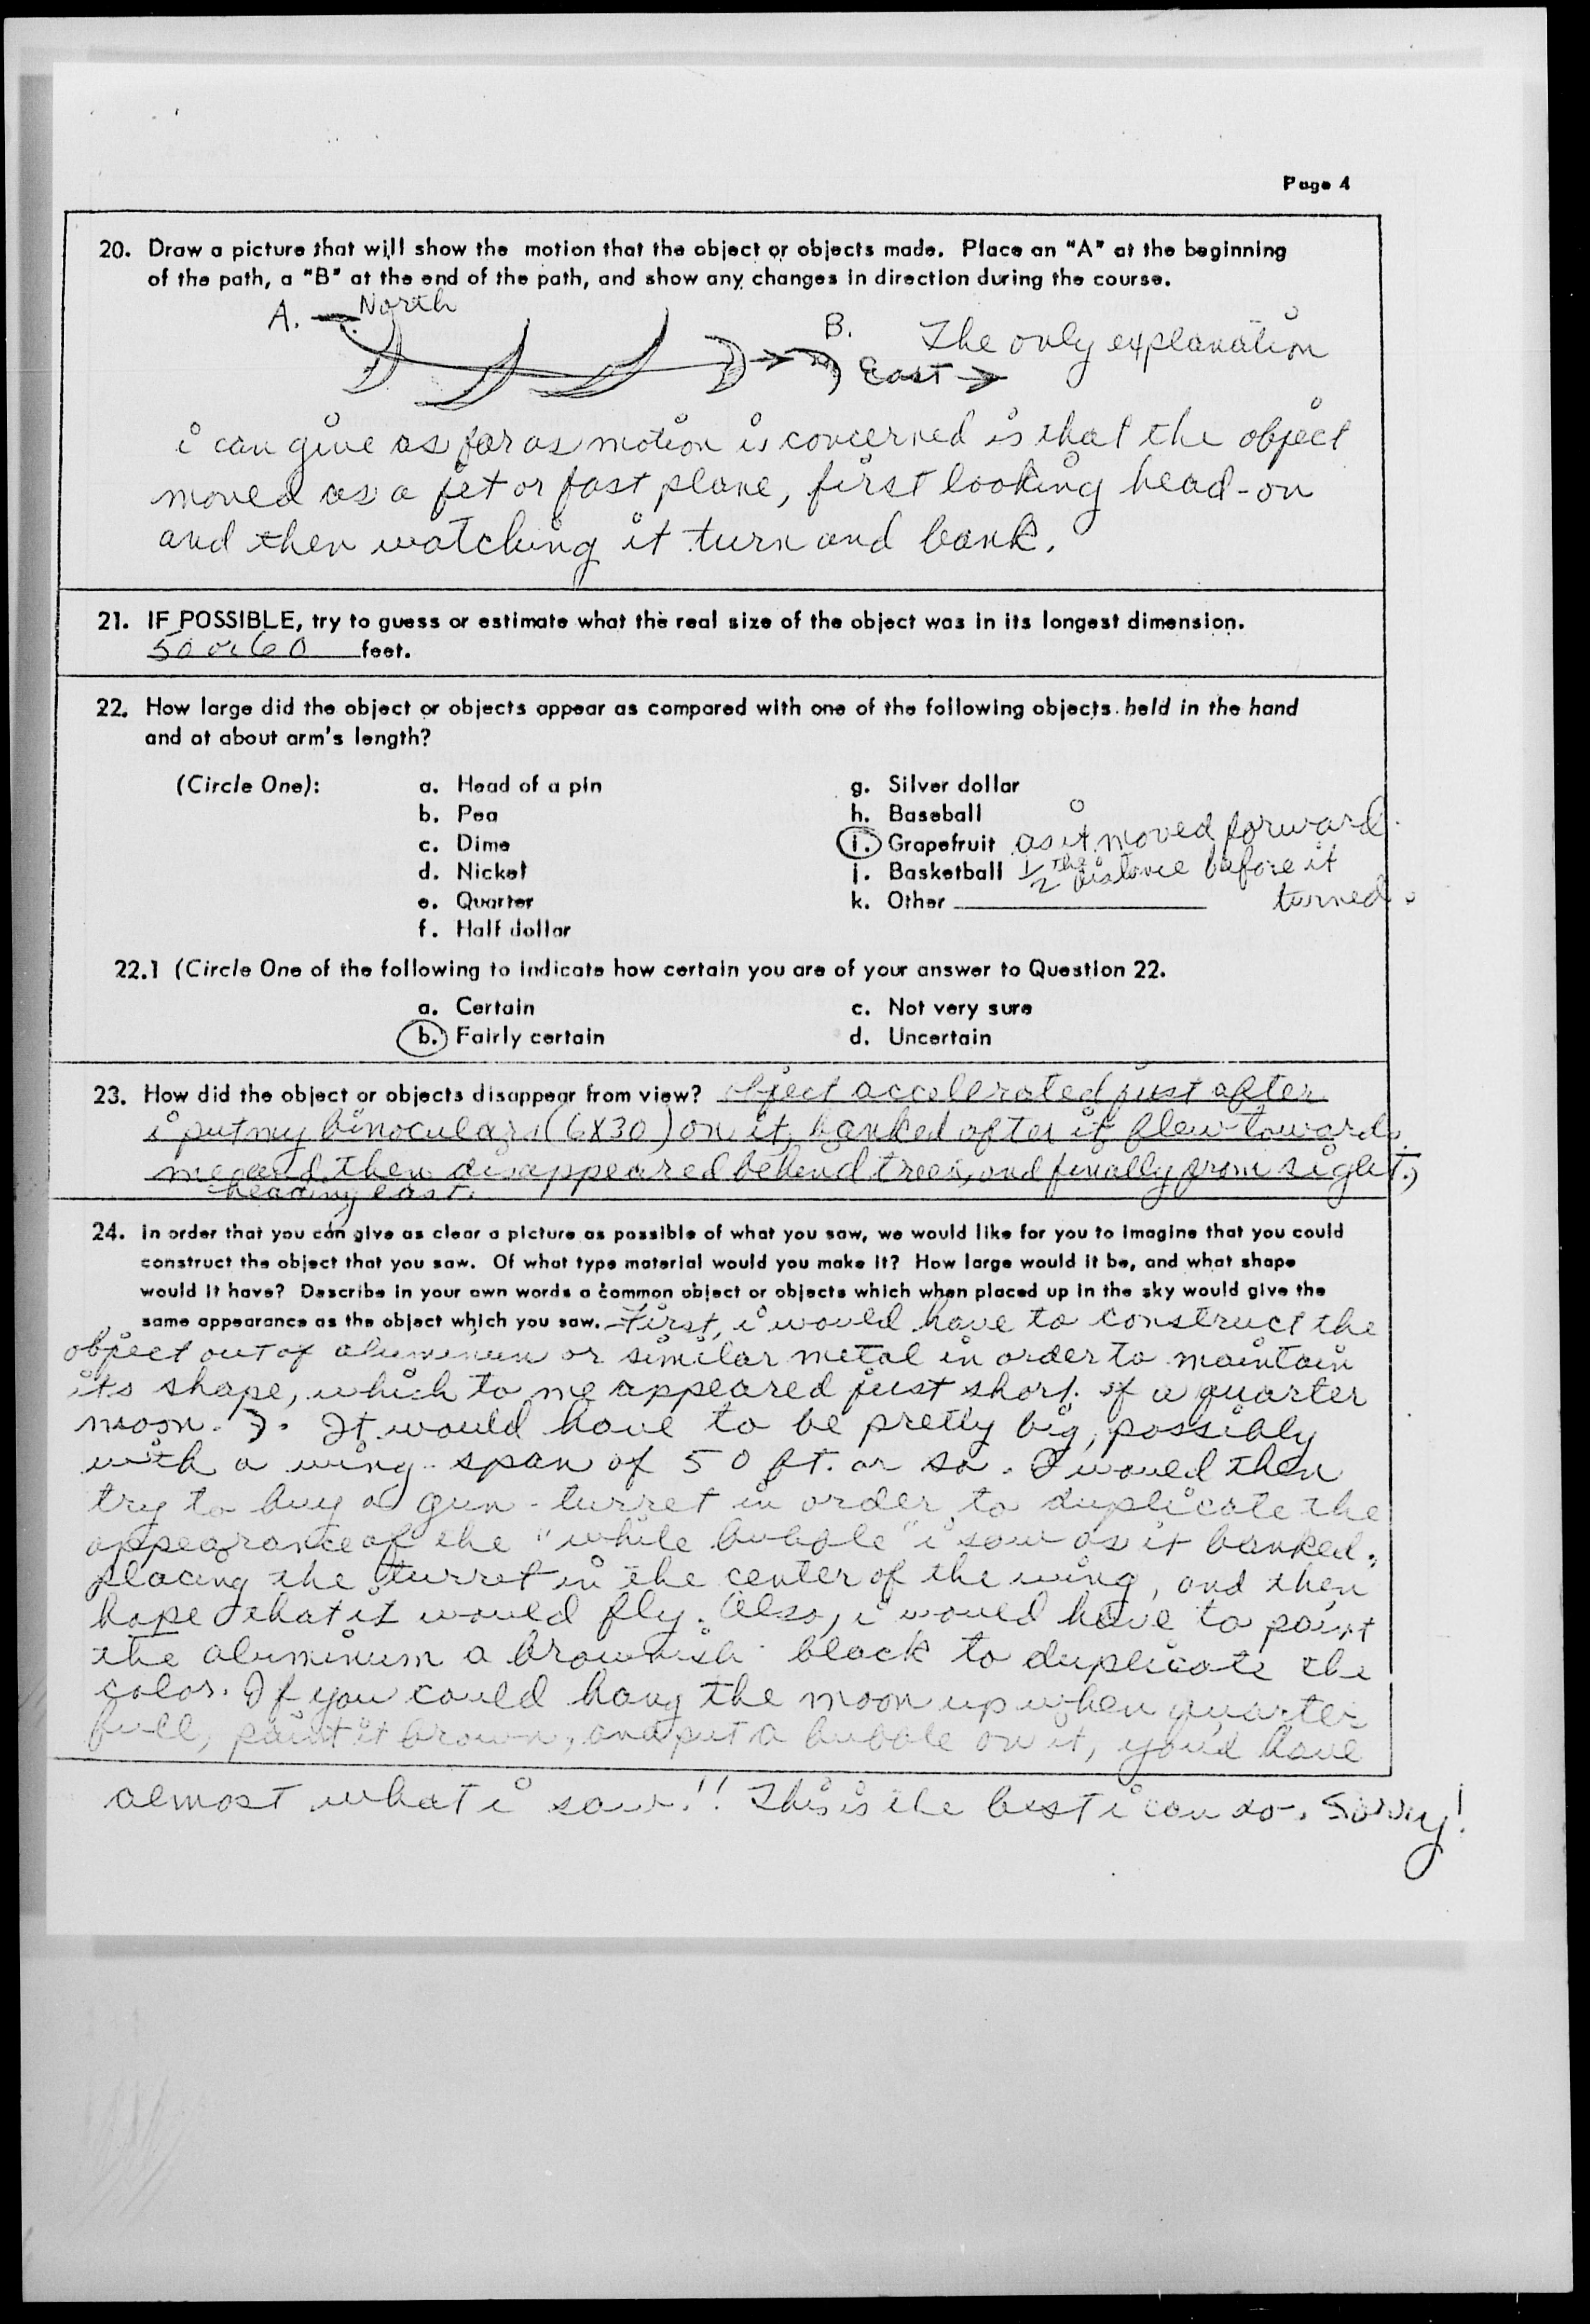 Page 4
20. Draw a picture that will show the motion that the object or objects made. Place an "A" at the beginning
of the path, a "B" at the end of the path, and show any changes in direction during the course.
A. North
B. East
The only explanation
i can give as far as motion is concerned is that the object
moved as a jet or fast plane, first looking head-on
and then watching it turn and bank.
21. IF POSSIBLE, try to guess or estimate what the real size of the object was in its longest dimension.
50 or 60 feet.
22. How large did the object or objects appear as compared with one of the following objects held in the hand
and at about arm's length?
(Circle One): a. Head of a pin g. Silver dollar
b. Pea h. Baseball
c. Dime i. Grapefruit as it moved forward
d. Nickel j. Basketball 1/2 the distance before it
e. Quarter k. Other turned.
f. Half dollar
22.1 (Circle One of the following to indicate how certain you are of your answer to Question 22.
a. Certain c. Not very sure
b. Fairly certain d. Uncertain
23. How did the object or objects disappear from view? object accelerated just after
i put my binoculars (6X30) on it, banked after it flew towards
me and then disappeared behind trees, and finally from sight.)
heading east.
24. In order that you can give as clear a picture as possible of what you saw, we would like for you to imagine that you could
construct the object that you saw. Of what type material would you make it? How large would it be, and what shape
would it have? Describe in your own words a common object or objects which when placed up in the sky would give the
same appearance as the object which you saw. First, i would have to construct the
object out of aluminum or similar metal in order to maintain
its shape, which to me appeared just short of a quarter
moon. It would have to be pretty big, possibly
with a wing-span of 50 ft. or so. I would then
try to buy a gun-turret in order to duplicate the
appearance of the "white bubble" i saw as it banked,
placing the turret in the center of the wing, and then
hope that it would fly. Also, i would have to paint
the aluminum a brownish-black to duplicate the
color. If you could hang the moon up when quarter
full, paint it brown, and put a bubble on it, you'd have
almost what i saw!! This is the best i can do. Sorry!